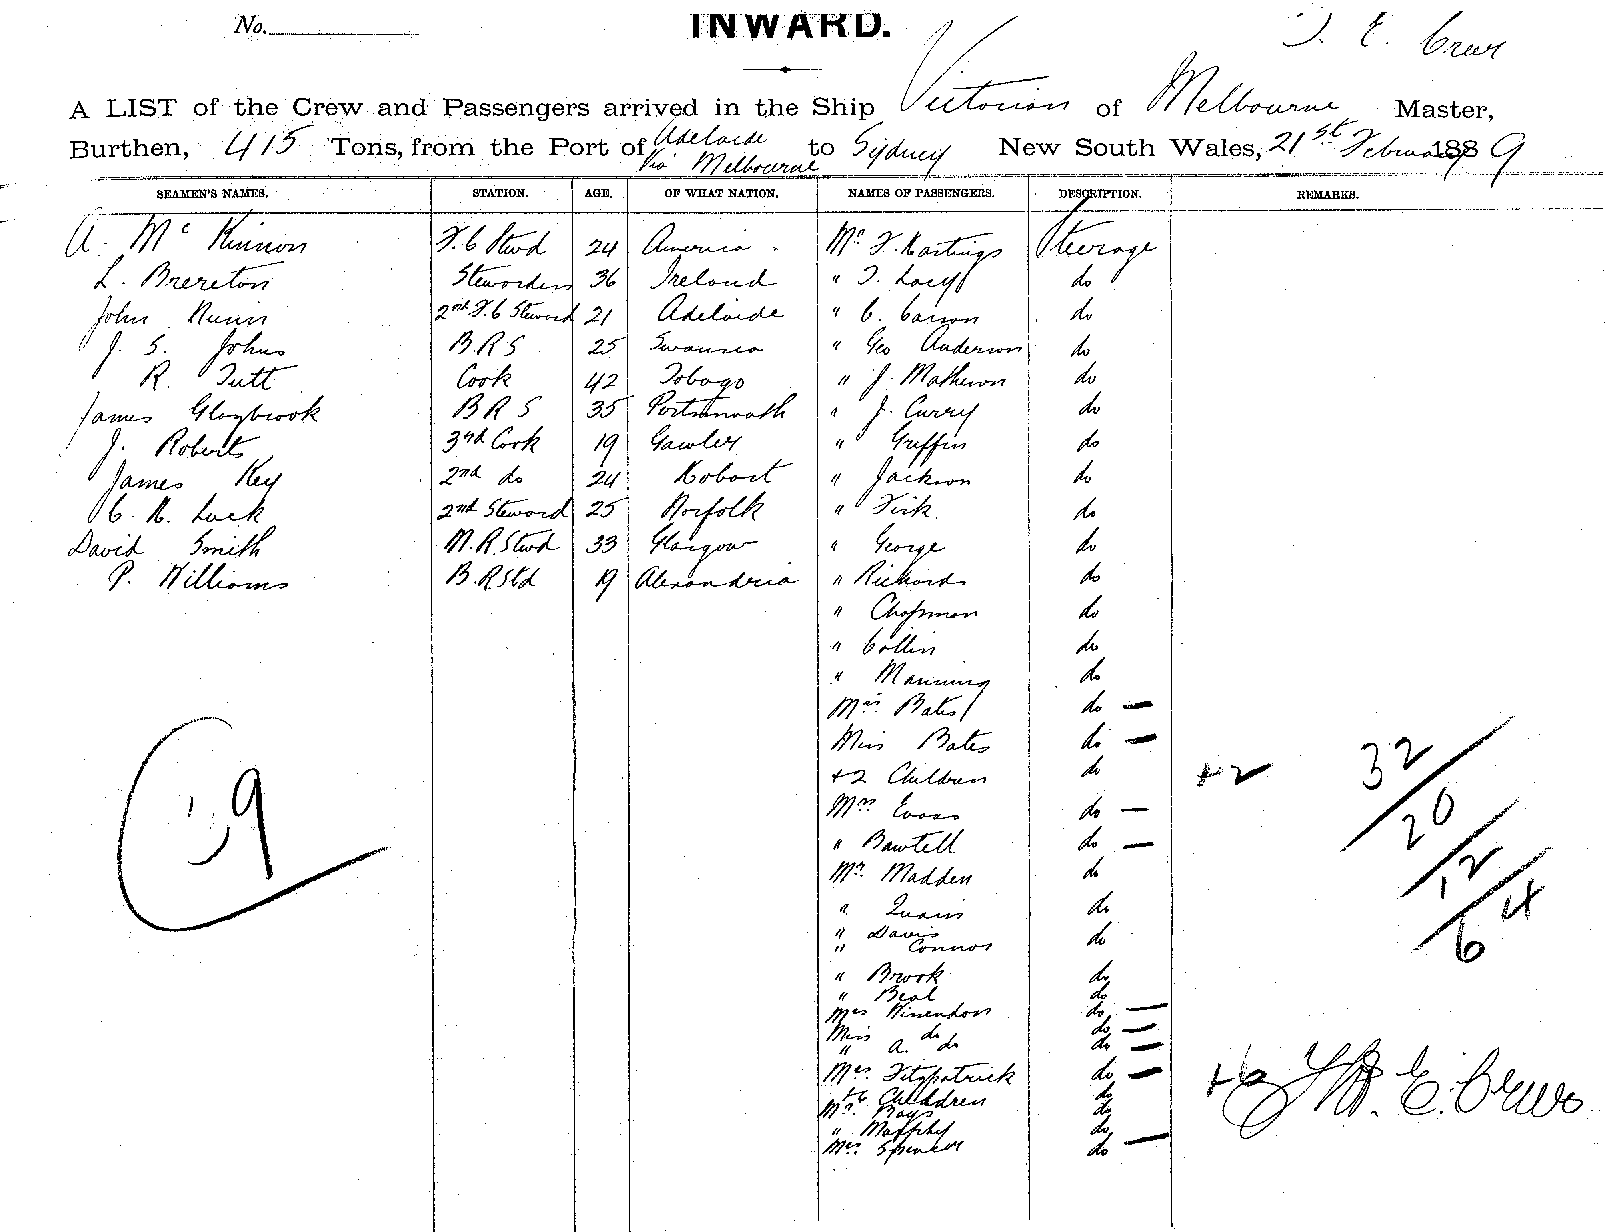 No.
INWARD.
T. E. Crew
A LIST of the Crew and Passengers arrived in the Ship Victorian of Melbourne Master,
Burthen, 415 Tons, from the Port of Adelaide via Melbourne to Sydney New South Wales, 21st February 1889
SEAMEN'S NAMES. STATION. AGE. OF WHAT NATION. NAMES OF PASSENGERS. DESCRIPTION. REMARKS.
A. McKinnon F.C Stwd 24 America Mr F. Hastings Steerage
L. Brereton Stewardess 36 Ireland " T. Lacy do
John Nunn 2nd F.C Steward 21 Adelaide " C. Carson do
J. S. Johns B.R S 25 Swansea " Geo Anderson do
R. Tutt Cook 42 Tobago " J. Matheson do
James Glaybrook B R S 35 Portsmouth " J. Curry do
J. Roberts 3rd Cook 19 Gawler " Griffin do
James Key 2nd do 24 Hobart " Jackson do
C. H. Luck 2nd Steward 25 Norfolk " Fisk do
David Smith M.R. Stwd 33 Glasgow " George do
P. Williams B.R Std 19 Alexandria " Richards do
" Chapman do
" Collin do
" Manning do
Mrs Bates do —
Miss Bates do —
+2 Children do +2 32
Mrs Evans do —
" Bawtell do — 20
Mr. Madden do 12
" do 64
" Davis
" Connor do
" Brook do
" Beal do
Mrs do —
Miss do do —
" A. do do —
Mrs. Fitzpatrick do — +6
+6 Children do
Mr. Bays do
" Murphy do
Mrs. Spencer do —
Thos. E. Crew